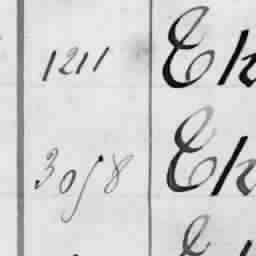 1211 Ek
3058 Ek